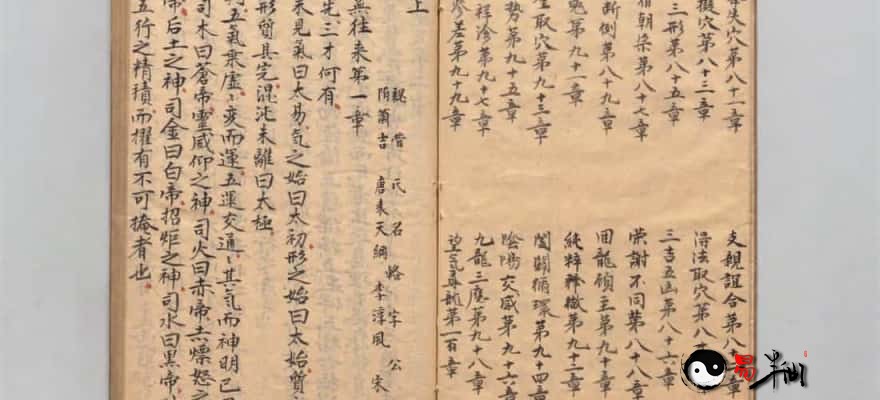 失穴第八十一章 支親誼合第八十二章
擬穴第八十三章 淂法取穴第八十
三形第八十五章 三吉五凶第八十六章
宿朝柒第八十七章 榮謝不同第八十八章
断倒第八十九章 囬龍顧主第九十章
第九十一章 純粹釋徴第九十二章
取穴第九十三章 闔闢循環第九十四章
勢第九十五章 陰陽交感第九十六章
祥沴第九十七章 九龍三應第九十八章
參差第九十九章 望氣尋龍第一百章
上
魏管氏名輅字公
隋蕭吉 唐袁天綱李淳風 宋
無往来第一章
先三才何有
未見氣曰太易气之始曰太初形之始曰太始質
形質具完混沌未離曰太極
五氣乘虛〻变而運五運交通〻其气而神明已
司木曰蒼帝靈威仰之神司火曰赤帝赤熛怒之
帝后土之神司金曰白帝招炬之神司水曰黒帝
五行之精積而擢有不可掩者也
易半仙